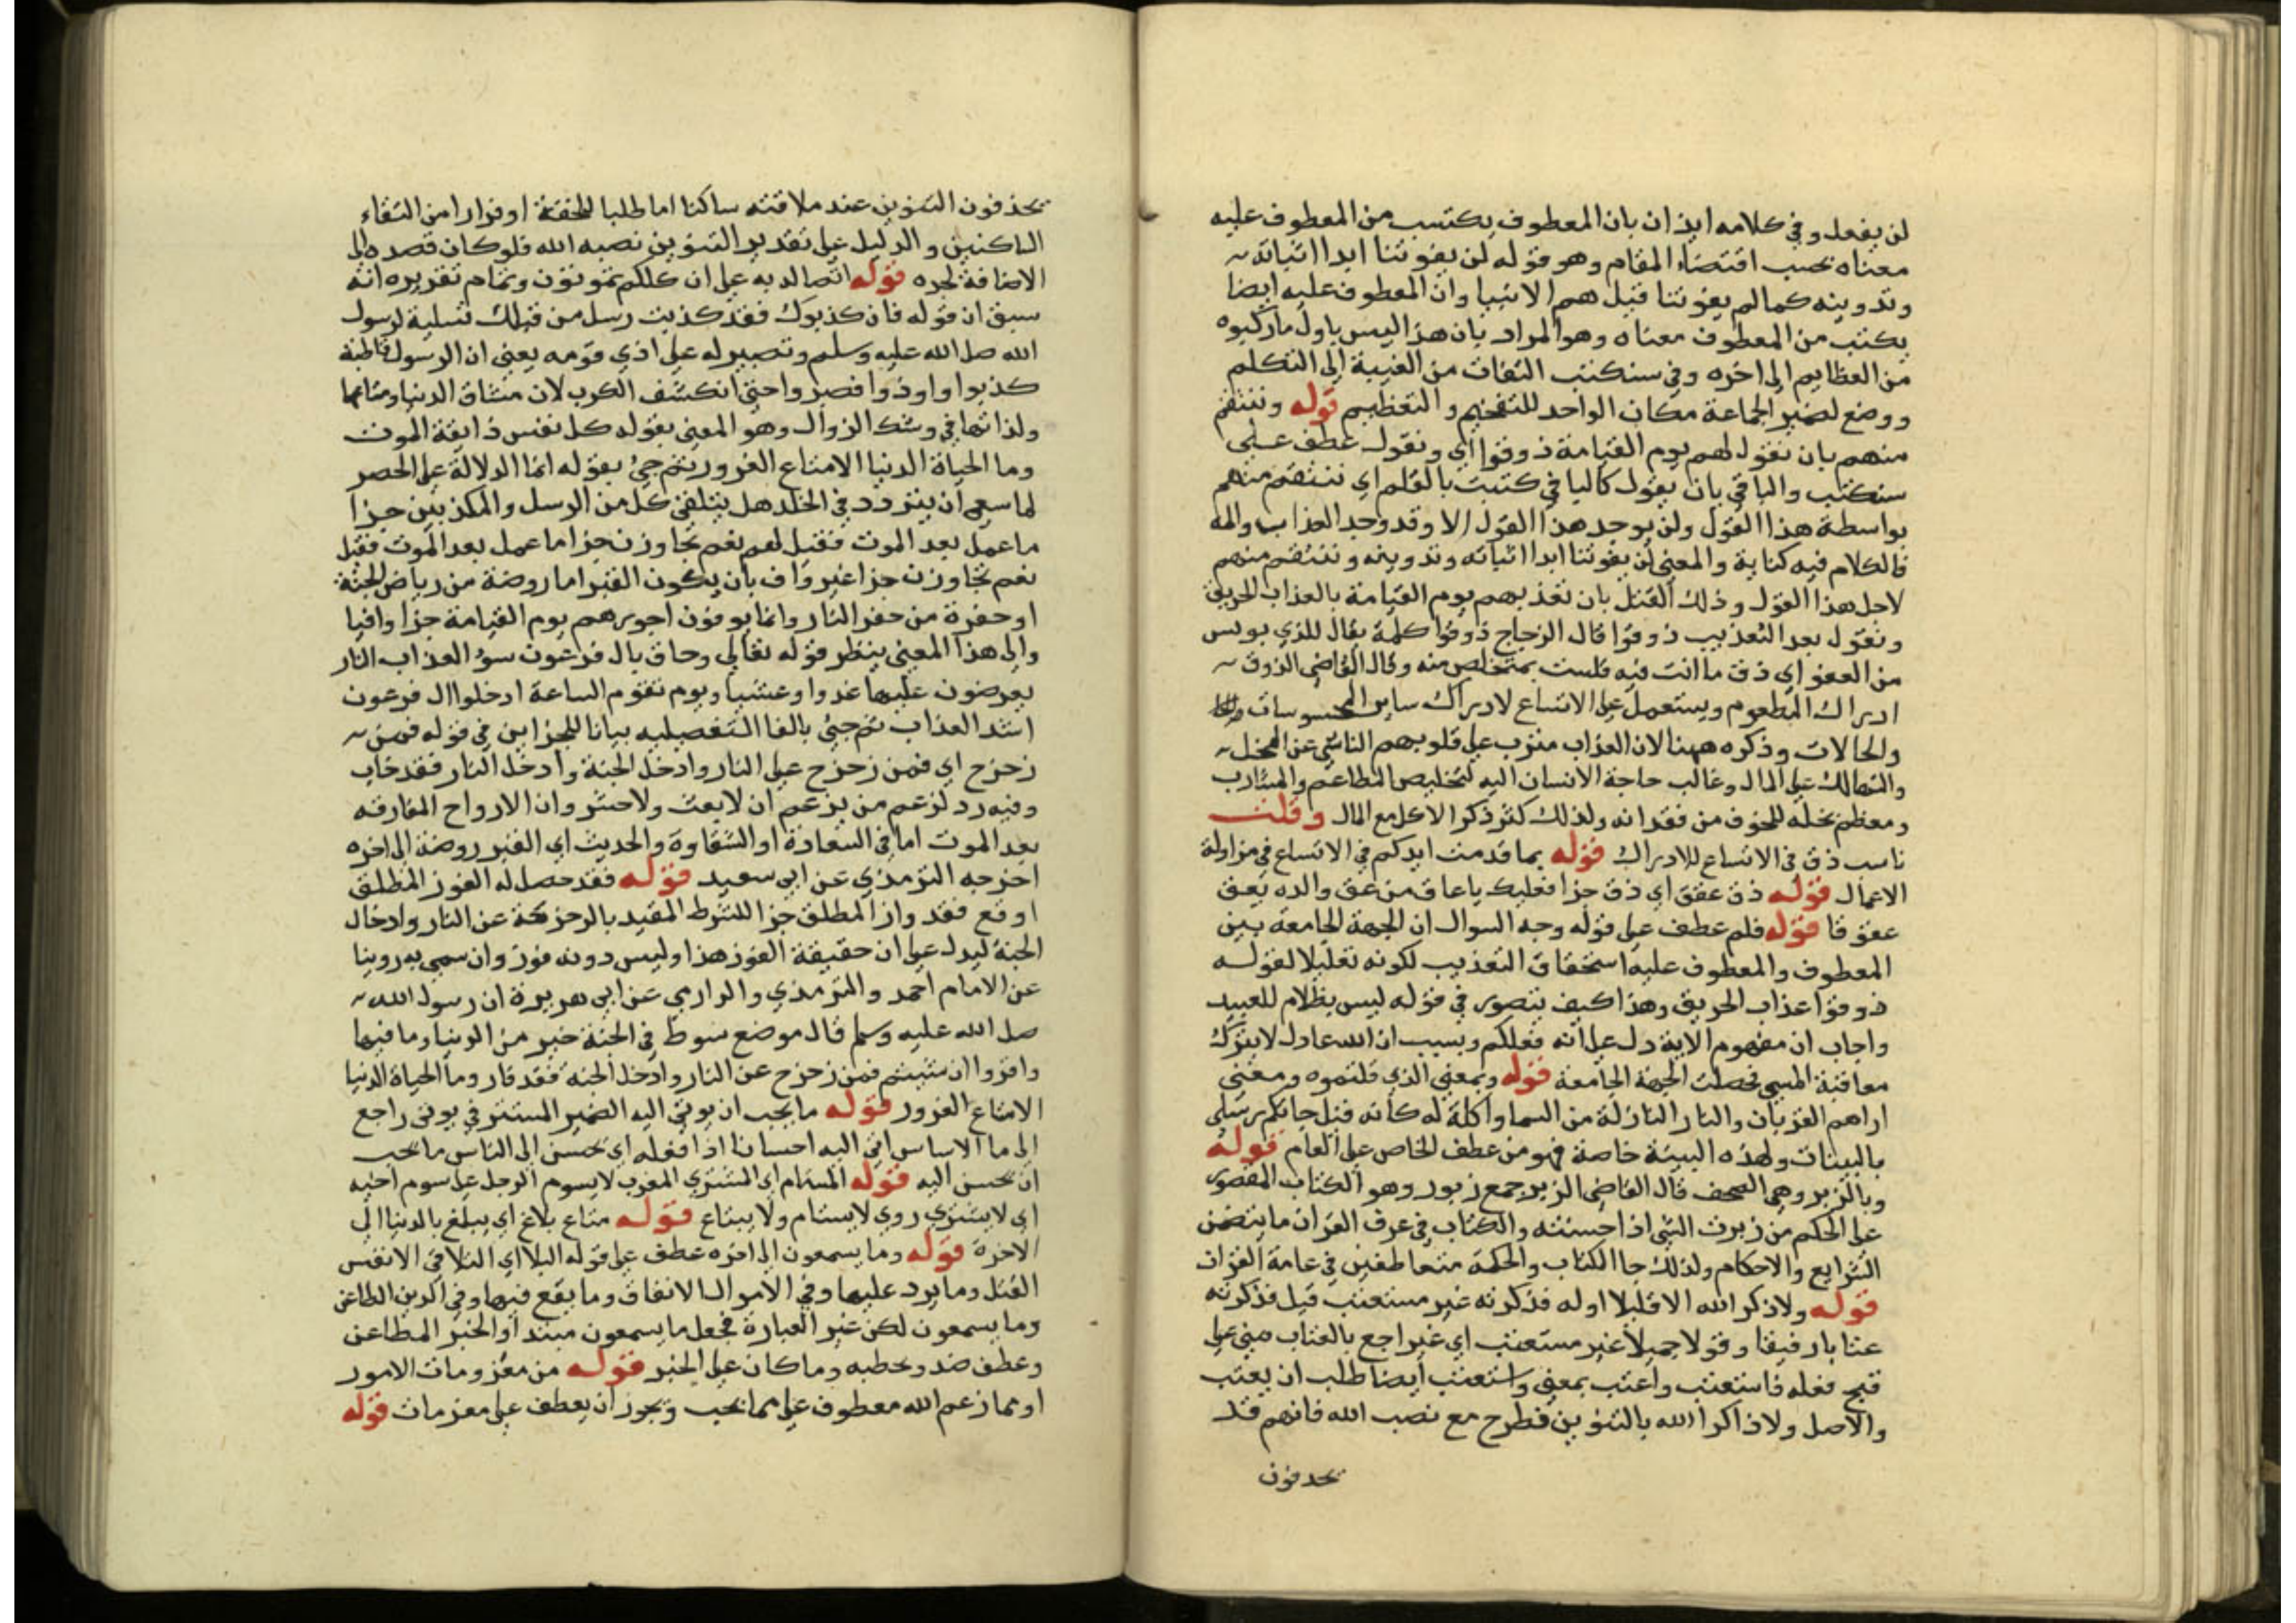 لن يفعل وفي كلامه ايذان بان المعطوف يكتسب من المعطوف عليه
معناه بحسب اقتضاء المقام وهو قوله لن يفوتنا ابدا اثباته
وتدوينه كما لم يفوتنا قتل هم الانبيا وان المعطوف عليه ايضا
يكتب من المعطوف معناه وهو المراد بان هذا ليس باول ما ركبوه
من العظايم الى اخره وفي سنكتب التفات من الغيبة الى التكلم
ووضع لضمير الجماعة مكان الواحد للتفخيم والتعظيم قوله وننتقم
منهم بان نقول لهم يوم القيامة ذوقوا اي ونقول عطف على
سنكتب والباقي بان يقول كالبا في كتبت بالقلم اي ننتقم منهم
بواسطة هذا القول ولن يوجد هذا القول الا وقد وجد العذاب والمه
فالكلام فيه كناية والمعنى لن يفوتنا ابدا اثباته وتدوينه وننتقم منهم
لاجل هذا القول وذلك القتل بان نعذبهم يوم القيامة بالعذاب الحريق
ونقول بعد التعذيب ذوقوا قال الزجاج ذوقوا كلمة يقال للذي يويس
من العفو اي ذق ما انت فيه فلست بمتخلص منه وقال القاضي الذوق
ادراك المطعوم ويستعمل على الاتساع لادراك ساير المحسوسات
والحالات وذكره ههنا لان العذاب مترب على قلوبهم الناشي عن البخل
والتهالك على المال وغالب حاجة الانسان اليه لتخليص المطاعم والمشارب
ومعظم بخله للخوف من فقدانه ولذلك كثر ذكر الاكل مع المال وقلت
ناسب ذق في الاتساع للادراك قوله بما قدمت ايديكم في الاتساع في مزاولة
الاعمال قوله ذق عقق اي ذق جزا فعليك يا عاق من عق والده يعق
عقوقا قوله فلم عطف على قوله وجه السوال ان الجهة الجامعة بين
المعطوف والمعطوف عليه استحقاق التعذيب لكونه تعليلا لقوله
ذوقوا عذاب الحريق وهذا كيف يتصور في قوله ليس بظلام للعبيد
واجاب ان مفهوم الاية دل على انه فعلكم وبسبب ان الله عادل لا يترك
معاقبة المسي فحصلت الجهة الجامعة قوله وبمعنى الذي قلتموه ومعنى
اراهم القربان والنار النازلة من السما واكلة له كانه قيل جاتكم رسلي
بالبينات ولهذه البينة خاصة فهو من عطف الخاص على العام قوله
وبالزبر وهي الصحف قال القاضي الزبر جمع زبور وهو الكتاب المقصور
على الحكم من زبرت الشي اذا حسنته والكتاب في عرف القران ما يتضمن
الشرايع والاحكام ولذلك جا الكتاب والحكمة متعاطفين في عامة القران
قوله ولا ذكر الله الا قليلا اوله فذكرته غير مستعتب قيل فذكرته
عتابا رفيقا وقولا جميلا غير مستعتب اي غير راجع بالعتاب مبني على
قبح فعله فاستعتب واعتب بمعنى واستعتب ايضا طلب ان يعتب
والاصل ولا ذاكر الله بالتنوين فطرح مع نصب الله فانهم قد
يحذفون
يحذفون التنوين عند ملاقته ساكنا اما طلبا للخفة او فرارا من التقاء
الساكنين والدليل على تقدير التنوين نصبه الله فلو كان قصده الى
الاضافة لجره قوله اتصالد به على ان كلكم تموتون وتمام تقريره انه
سبق ان قوله فان كذبوك فقد كذبت رسل من قبلك تسلية لرسول
الله صلى الله عليه وسلم وتصبير له على اذي قومه يعني ان الرسول قاطبة
كذبوا واوذوا فصبروا حتى انكشف الكرب لان مشاق الدنيا ومتاعها
ولذاتها في وشك الزوال وهو المعنى بقوله كل نفس ذايقة الموت
وما الحياة الدنيا الا متاع الغرور ثم جئ بقوله انما الدلالة على الحصر
لما سعى ان يتردد في الخلد هل يتلقى كل من الرسل والمكذبين جزا
ما عمل بعد الموت فقيل لعم نعم تجاوزن جزا ما عمل بعد الموت فقيل
نعم تجاوزن جزا غير واف بان يكون القبر اما روضة من رياض الجنة
او حفرة من حفر النار وانما يوفون اجورهم يوم القيامة جزا وافيا
والى هذا المعنى ينظر قوله تعالى وحاق بال فرعون سؤ العذاب النار
يعرضون عليها غدوا وعشيا ويوم تقوم الساعة ادخلوا ال فرعون
اشد العذاب ثم جيئ بالفا التفصيليه بيانا للجزاين في قوله فمن
زحزح اي فمن زحزح على النار وادخل الجنة وادخل النار فقد خاب
وفيه رد لزعم من يزعم ان لا بعث ولا حشر وان الارواح المفارقه
بعد الموت اما في السعادة او الشقاوة والحديث اي القبر روضة الى اخره
اخرجه الترمذي عن ابى سعيد قوله فقد حصل له الفوز المطلق
اوقع فقد واز المطلق جزا للشرط المقيد بالزحزحة عن النار وادخال
الجنة ليدل على ان حقيقة الفوز هذا وليس دونه فوز وان سمى به روينا
عن الامام احمد والترمذي والدارمي عن ابى هريرة ان رسول الله
صلى الله عليه وسلم قال موضع سوط في الجنة خير من الدنيا وما فيها
واقروا ان شيتم فمن زحزح عن النار وادخل الجنه فقد فاز وما الحياة الدنيا
الا متاع الغرور قوله ما يحب ان يوتى اليه الضمير المستتر في يوتى راجع
الى ما الاساس اتى اليه احسانا اذا فعله اي يحسن الى الناس ما يحب
ان يحسن اليه قوله المستام اي المشترى المغرب لا يسوم الرجل على سوم اخيه
اي لا يشترى روى لا يستام ولا يبتاع قوله متاع بلاغ اي يبلغ بالدنيا الى
الاخرة قوله وما يسمعون الى اخره عطف على قوله البلا اي البلا في الانفس
القتل وما يرد عليها وفي الاموال الانفاق وما يقع فيها وفي الدين الطاعن
وما يسمعون لكن غير العبارة فجعل ما يسمعون مبتدا والخبر المطاعن
وعطف صد وتحطيه وما كان على الخبر قوله من معزومات الامور
او مما زعم الله معطوف على مما يحب ويجوز ان يعطف على معزمات قوله